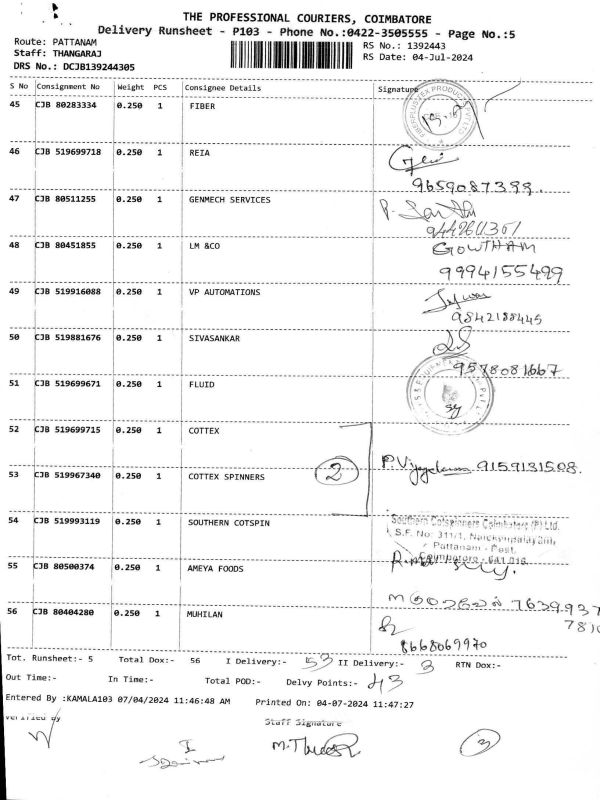 THE PROFESSIONAL COURIERS, COIMBATORE
Delivery Runsheet - P103 - Phone No.:0422-3505555 - Page No.:5
Route: PATTANAM
RS No.: 1392443
Staff: THANGARAJ
RS Date: 04-Jul-2024
DRS No.: DCJB139244305
S No Consignment No Weight PCS Consignee Details Signature
45 CJB 80283334 0.250 1 FIBER
46 CJB 519699718 0.250 1 REIA
9659087399.
47 CJB 80511255 0.250 1 GENMECH SERVICES
48 CJB 80451855 0.250 1 LM &CO GOWTHAM
9994155499
49 CJB 519916088 0.250 1 VP AUTOMATIONS
9842188445
50 CJB 519881676 0.250 1 SIVASANKAR
9578081667
51 CJB 519699671 0.250 1 FLUID
52 CJB 519699715 0.250 1 COTTEX
2
53 CJB 519967340 0.250 1 COTTEX SPINNERS 9159131508.
54 CJB 519993119 0.250 1 SOUTHERN COTSPIN
Southern Cotspinners Coimbatore (P) Ltd.
S.F. No: 311/1,
Pattanam - Post,
Coimbatore - 641 016.
55 CJB 80500374 0.250 1 AMEYA FOODS
7639937
56 CJB 80404280 0.250 1 MUHILAN
7810
8668069970
Tot. Runsheet:- 5 Total Dox:- 56 I Delivery:- 53 II Delivery:- 3 RTN Dox:-
Out Time:- In Time:- Total POD:- Delvy Points:- 43
Entered By :KAMALA103 07/04/2024 11:46:48 AM Printed On: 04-07-2024 11:47:27
Verified By Staff Signature
I
3